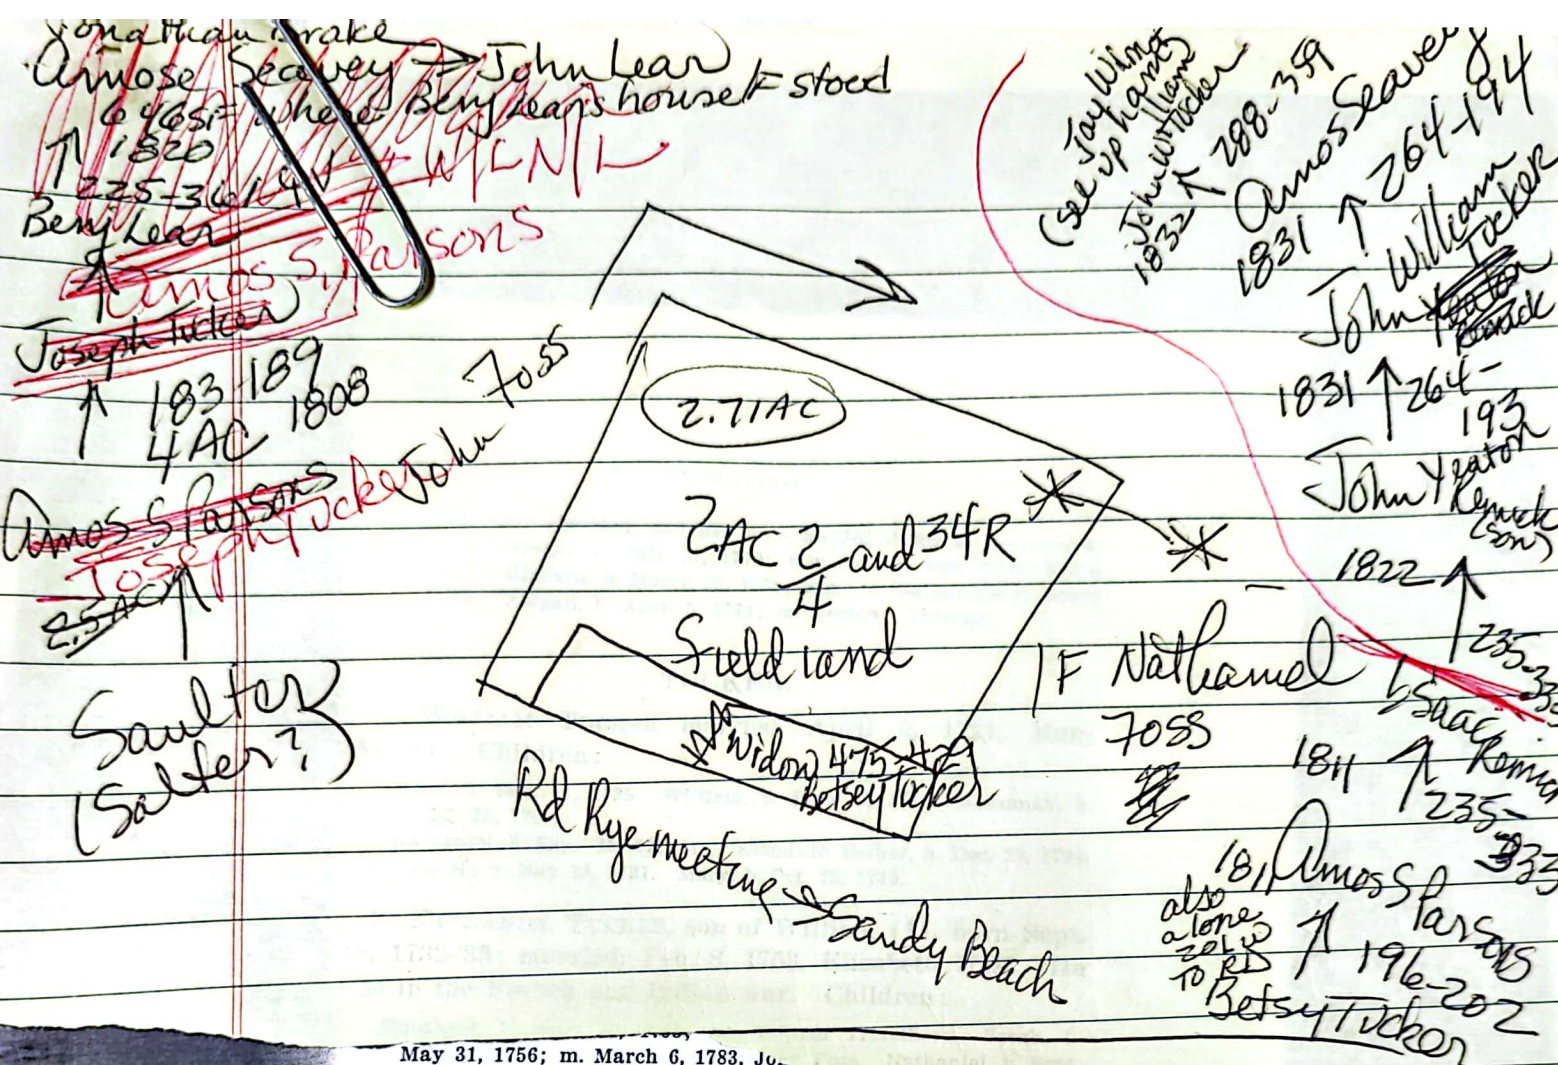 Jonathan Drake
Amose Seavey → John Lear
where Benj Lears house F stood
↑ 1820
Benj Lear
Amos S. Parsons
Joseph Tucker
↑ 183-189
1808
4 AC
Amos S Parsons
Joseph Tucker
2.5 AC
Saulter
(Salter?)
John Foss
2.71 AC
2AC 2 and 34R
4
Field land
Widow 475-421
Betsey Tucker
Rd Rye meeting → Sandy Beach
F Nathaniel
Foss
(see up
John W Tucker
1832 ↑ 288-359
Amos Seavey
1831 ↑ 264-194
John William
Tucker
Yeaton
Remick
1831 ↑ 264-
193
John Yeaton
Remick
(son)
1822 ↑
235-
Isaac
1811 ↑ 235-
333
1811 Amos S Parsons
also
alone
to RD
↑ 196-202
Betsy Tucker
May 31, 1756; m. March 6, 1783,